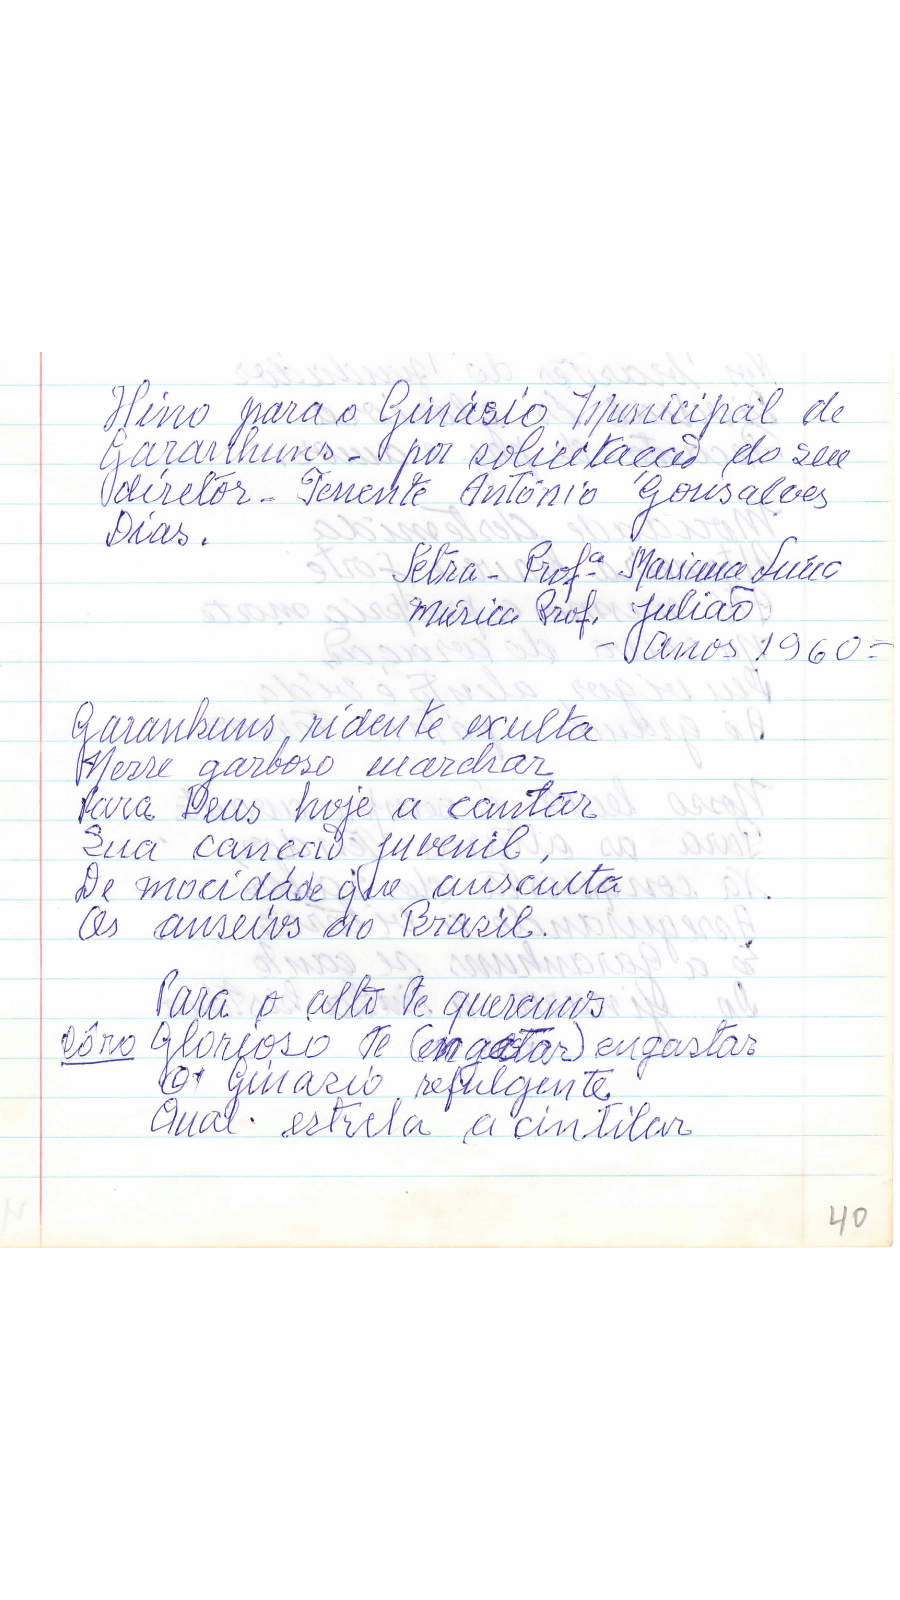 Hino para o Ginásio Municipal de
Garanhuns - por solicitação do seu
diretor - Tenente Antônio Gonsalves
Dias.
Letra - Profª Mariana
Música Prof. Julião
- Anos 1960 =
Garanhuns, ridente exulta
Nesse garboso marchar
Para Deus hoje a cantar
Sua canção juvenil,
De mocidade que ausculta
Os anseios do Brasil.
Para o alto te queremos
Côro Glorioso te (engastar) engastar
O Ginazio refulgente
Qual estrela a cintilar
40